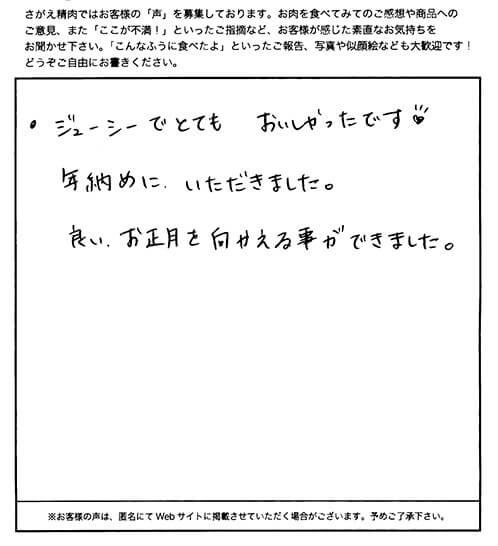 さがえ精肉ではお客様の「声」を募集しております。お肉を食べてみてのご感想や商品への
ご意見、また「ここが不満！」といったご指摘など、お客様が感じた素直なお気持ちを
お聞かせ下さい。「こんなふうに食べたよ」といったご報告、写真や似顔絵なども大歓迎です！
どうぞご自由にお書きください。
・ジューシーでとても おいしかったです
年納めに、いただきました。
良い、お正月を向かえる事ができました。
※お客様の声は、匿名にてWebサイトに掲載させていただく場合がございます。予めご了承下さい。